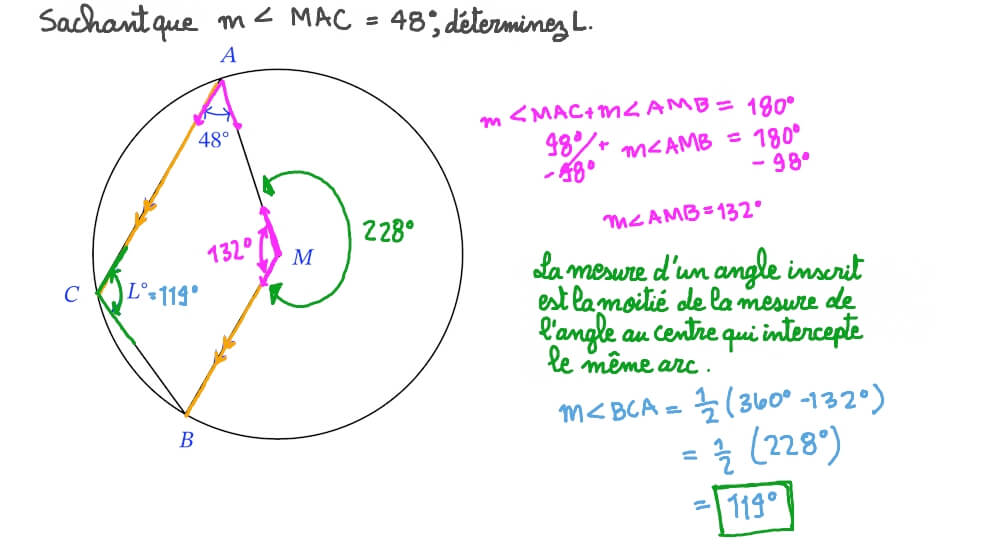 Sachant que m∠ MAC = 48°, déterminez L.
A
48°
m∠MAC+m∠AMB = 180°
48° + m∠AMB = 180°
-48° -48°
m∠AMB=132°
228°
132°
M
C
L°=114°
B
La mesure d'un angle inscrit
est la moitié de la mesure de
l'angle au centre qui intercepte
le même arc.
m∠BCA = 1/2 (360° -132°)
= 1/2 (228°)
= 114°